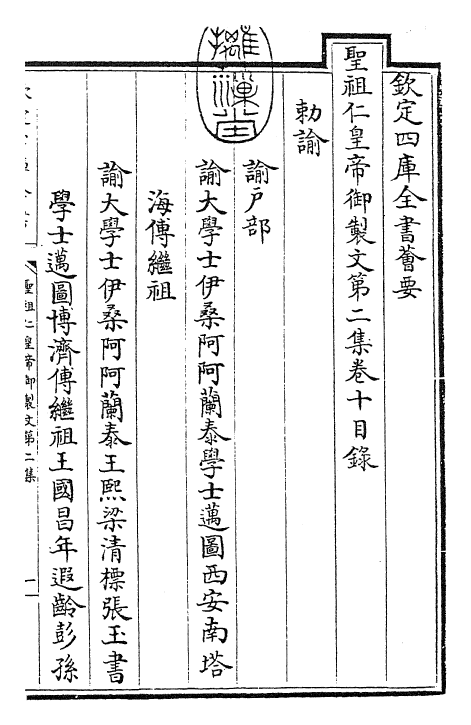 欽定四庫全書薈要
聖祖仁皇帝御製文第二集卷十目錄
勅諭
諭戶部
諭大學士伊桑阿阿蘭泰學士邁圖西安南塔
海傅繼祖
諭大學士伊桑阿阿蘭泰王熙梁清標張玉書
學士邁圖博濟傅繼祖王國昌年遐齡彭孫
聖祖仁皇帝御製文第二集
一